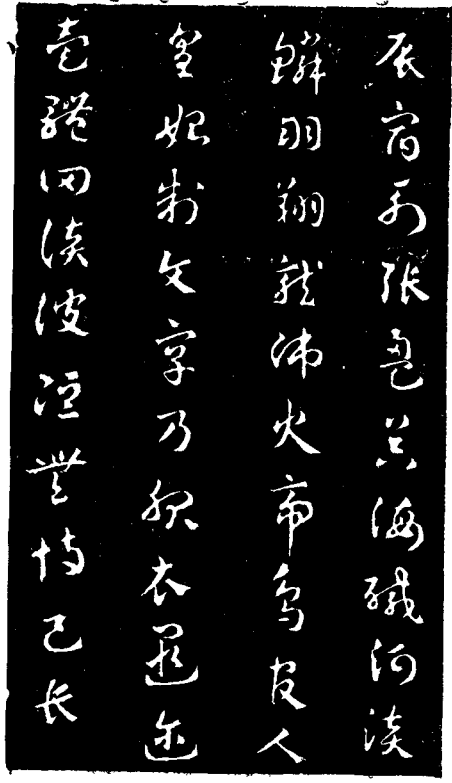 辰宿列張盈昃海鹹河淡
鱗羽翔龍師火帝鳥官人
皇始制文字乃服衣遐迩
壹體罔談彼短靡恃己長